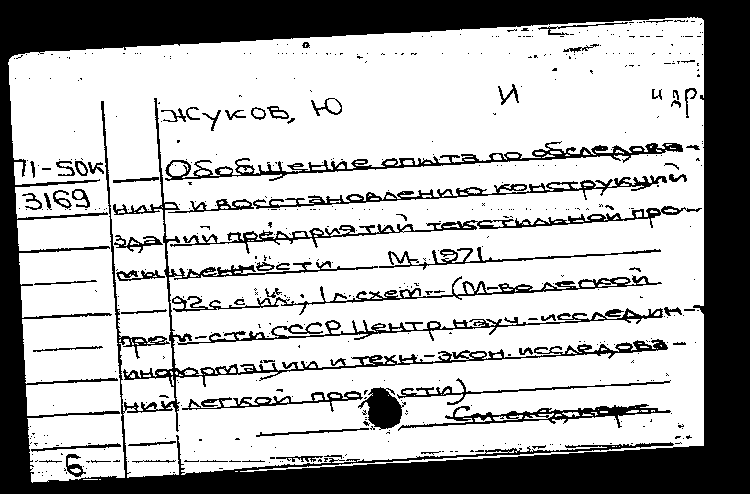 Жуков, Ю И и др.
71-50к Обобщение опыта по обследова-
3169 нию и восстановлению конструкций
зданий предприятий текстильной про-
мышленности. М., 1971.
92 с. с ил.; 1 л. схем. (М-во легкой
пром-сти СССР. Центр. науч.-исслед. ин-т
информации и техн.-экон. исследова-
ний легкой пром-сти)
См. след. карт.
6